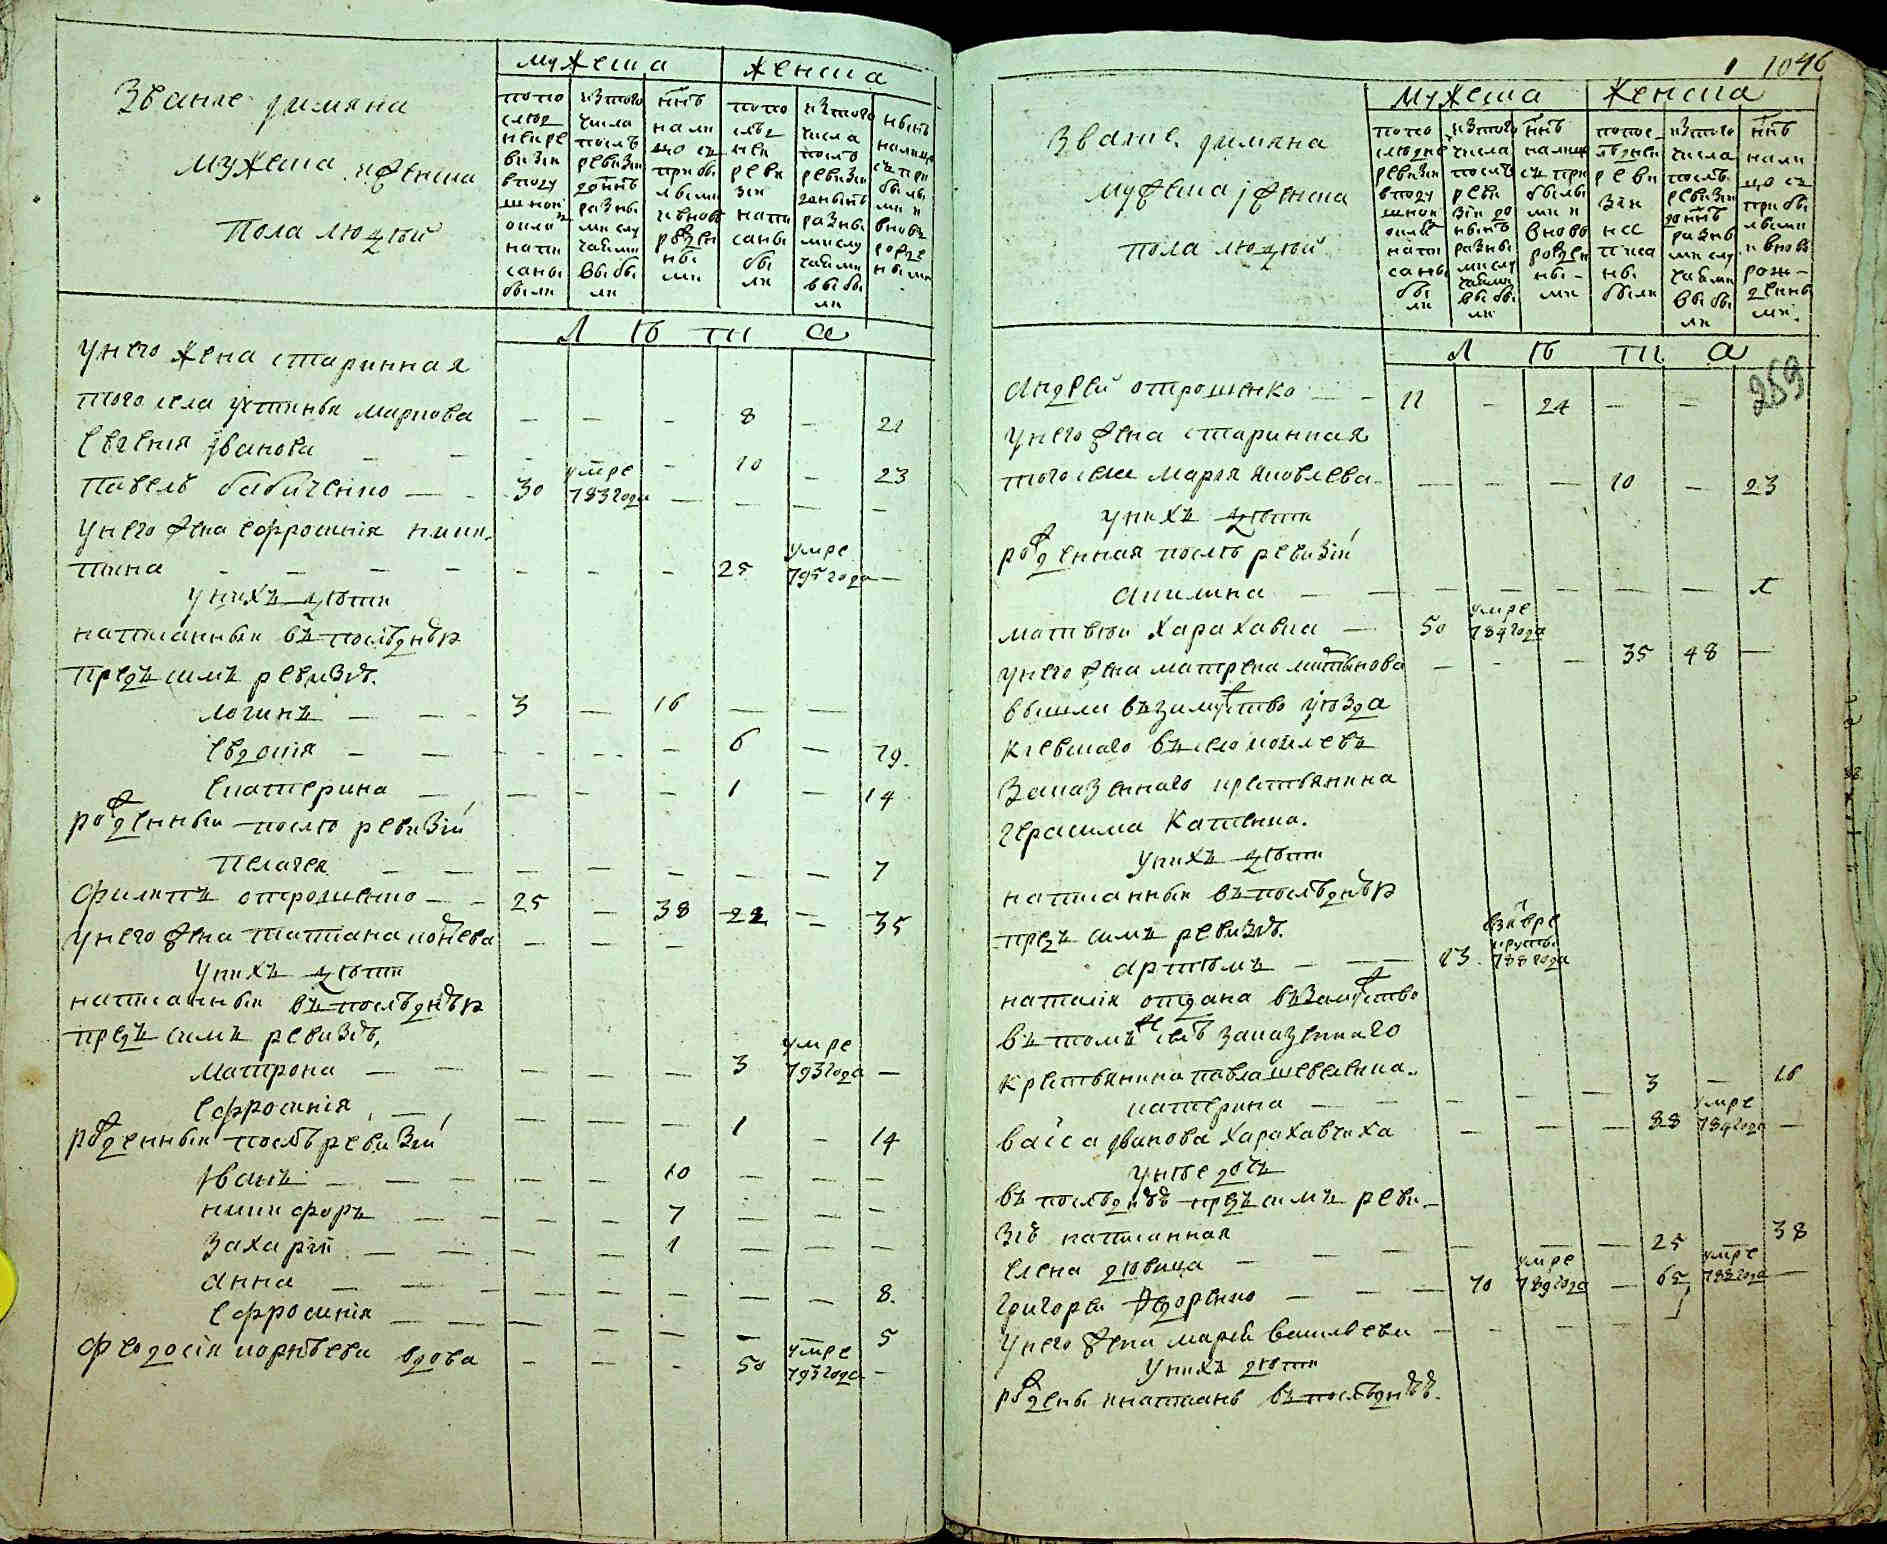 Званіе димяна
мужеска и женска
пола людѣй
мужеска
женска
по последней ревизіи в подушной окладъ написаны были
из того числа послѣ ревизіи до ннѣ разными случаями выбыли
ннѣ на лицо съ прибылыми и вновь рожденными
по последней ревизіи написаны были
из того числа послѣ ревизіи до ныне разными случаями выбыли
нынѣ на лицо съ прибылыми и вновь рожденными
Л ѣ т а
у него жена старинная
того села устинья маркова — — — 8 — 21
Евгения іванова — — — — 10 — 23
Павелъ бабиченко — — 30 умре 783 года — — — —
у него жена ефросинія ники-
тина — — — — — — — 25 умре 795 года —
у нихъ дѣти
написанныи въ последнѣй
предъ симъ ревизіи.
логинъ — — — 3 — 16 — —
Евдокія — — — — — 6 — 19.
Екатерина — — — — 1 — 14
рожденныи после ревизіи
Пелагея — — — — — — — 7
филипъ отрошенко — — 25 — 38 — — —
у него жена татиана корнѣева — — — 22 — 35
у нихъ дѣти
написанныи въ последнѣй
предъ симъ ревизіи,
матрона — — — — — 3 умре 793 года —
Ефросинія — — — — 1 — 14
рожденныи послѣ ревизіи
Іванъ — — — — — 10 — — —
никифоръ — — — — 7 — — —
Захарій — — — — 1 — — —
Анна — — — — — — — — 8.
Ефросинія — — — — — — 5
феодосія корнѣева вдова — — — 50 умре 793 года —
1046
Званіе димяна
мужеска і женска
пола людѣй
мужеска
женска
по последней ревизіи в подушной окладъ написаны были
из того числа послѣ ревизіи до нынѣ разными случаями выбыли
ннѣ на лице съ прибылыми и вновь рожденными
по последней ревизіи написаны были
из того числа послѣ ревизіи до ннѣ разными случаями выбыли
ннѣ на лицо съ прибылыми и вновь рожденными
Л ѣ т а
269
Андрей отрошенко — — 11 — 24 — —
у него жена старинная
того села Марія яковлева — — — — 10 — 23
у нихъ дѣти
рожденная послѣ ревизіи
акилина — — — — — — — 1
матвѣй Харахавка — 50 умре 784 года
у него жена матрена мартынова — — — 35 48 —
вышла въ замужство уѣзда
Кіевскаго въ село
Заказенаго крестьянина
герасима Катенка.
у нихъ дѣти
написанныи въ последнѣй
предъ симъ ревизіи.
артѣмъ — — — 13 взятъ в рекруты 788 года
наталія отдана въ замужство
въ томъ же селѣ заказеннаго
крестьянина павла шевеленка.
катерина — — — — — 3 — 16
васса іванова Харахавчиха — — — 38 умре 784 года —
у нѣе дочь
въ последнѣй предъ симъ реви-
зіи написанная
елена дѣвица — — — — — 25 — 38
григорій Федоренко — — — 70 умре 789 года — 65 умре 788 года —
у него жена марія василева — — — —
у нихъ дѣти
рождены и написанъ въ последнѣй.